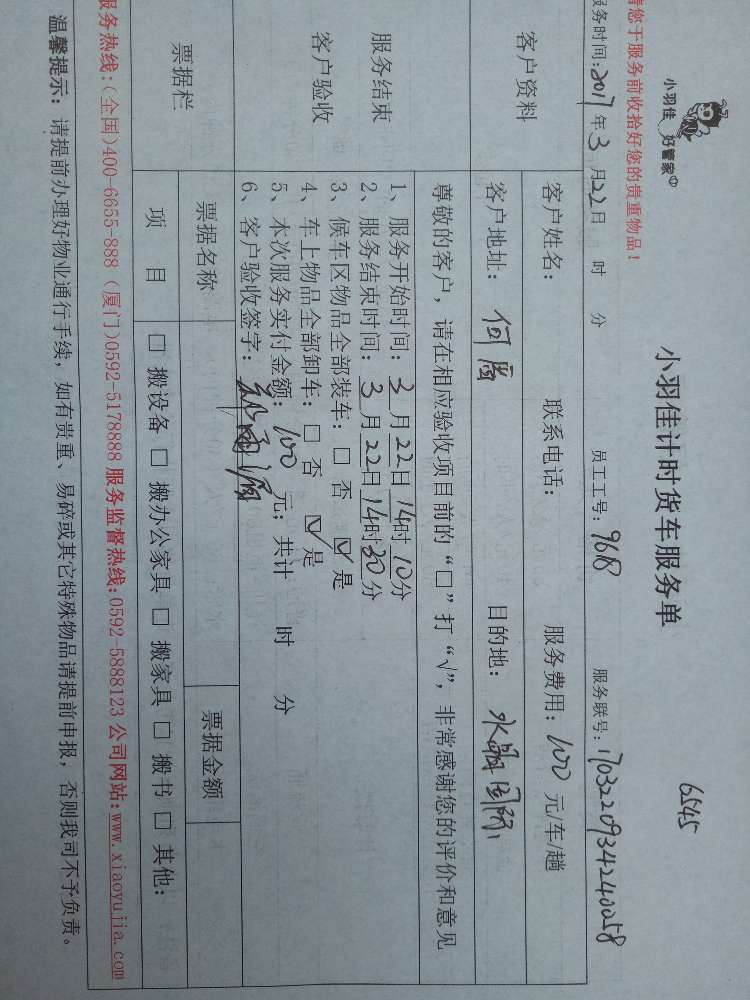 小羽佳 好管家
小羽佳计时货车服务单
6545
请您于服务前收拾好您的贵重物品！
服务时间：2017年3月22日 时 分 员工工号：9618 服务联号：170322093424240058
客户资料
客户姓名： 联系电话： 服务费用：100元/车/趟
客户地址：何厝 目的地：水晶国际
服务结束
客户验收
尊敬的客户，请在相应验收项目前的“□”打“√”，非常感谢您的评价和意见
1、服务开始时间：3月22日14时10分
2、服务结束时间：3月22日14时30分
3、候车区物品全部装车：□ 否 ☑ 是
4、车上物品全部卸车：□ 否 ☑ 是
5、本次服务实付金额：100元；共计 时 分
6、客户验收签字：
票据栏
票据名称 票据金额
项 目 □ 搬设备 □ 搬办公家具 □ 搬家具 □ 搬书 □ 其他：
服务热线：（全国）400-6655-888（厦门）0592-5178888 服务监督热线：0592-5888123 公司网站：www.xiaoyujia.com
温馨提示：请提前办理好物业通行手续，如有贵重、易碎或其它特殊物品请提前申报，否则我司不予负责。